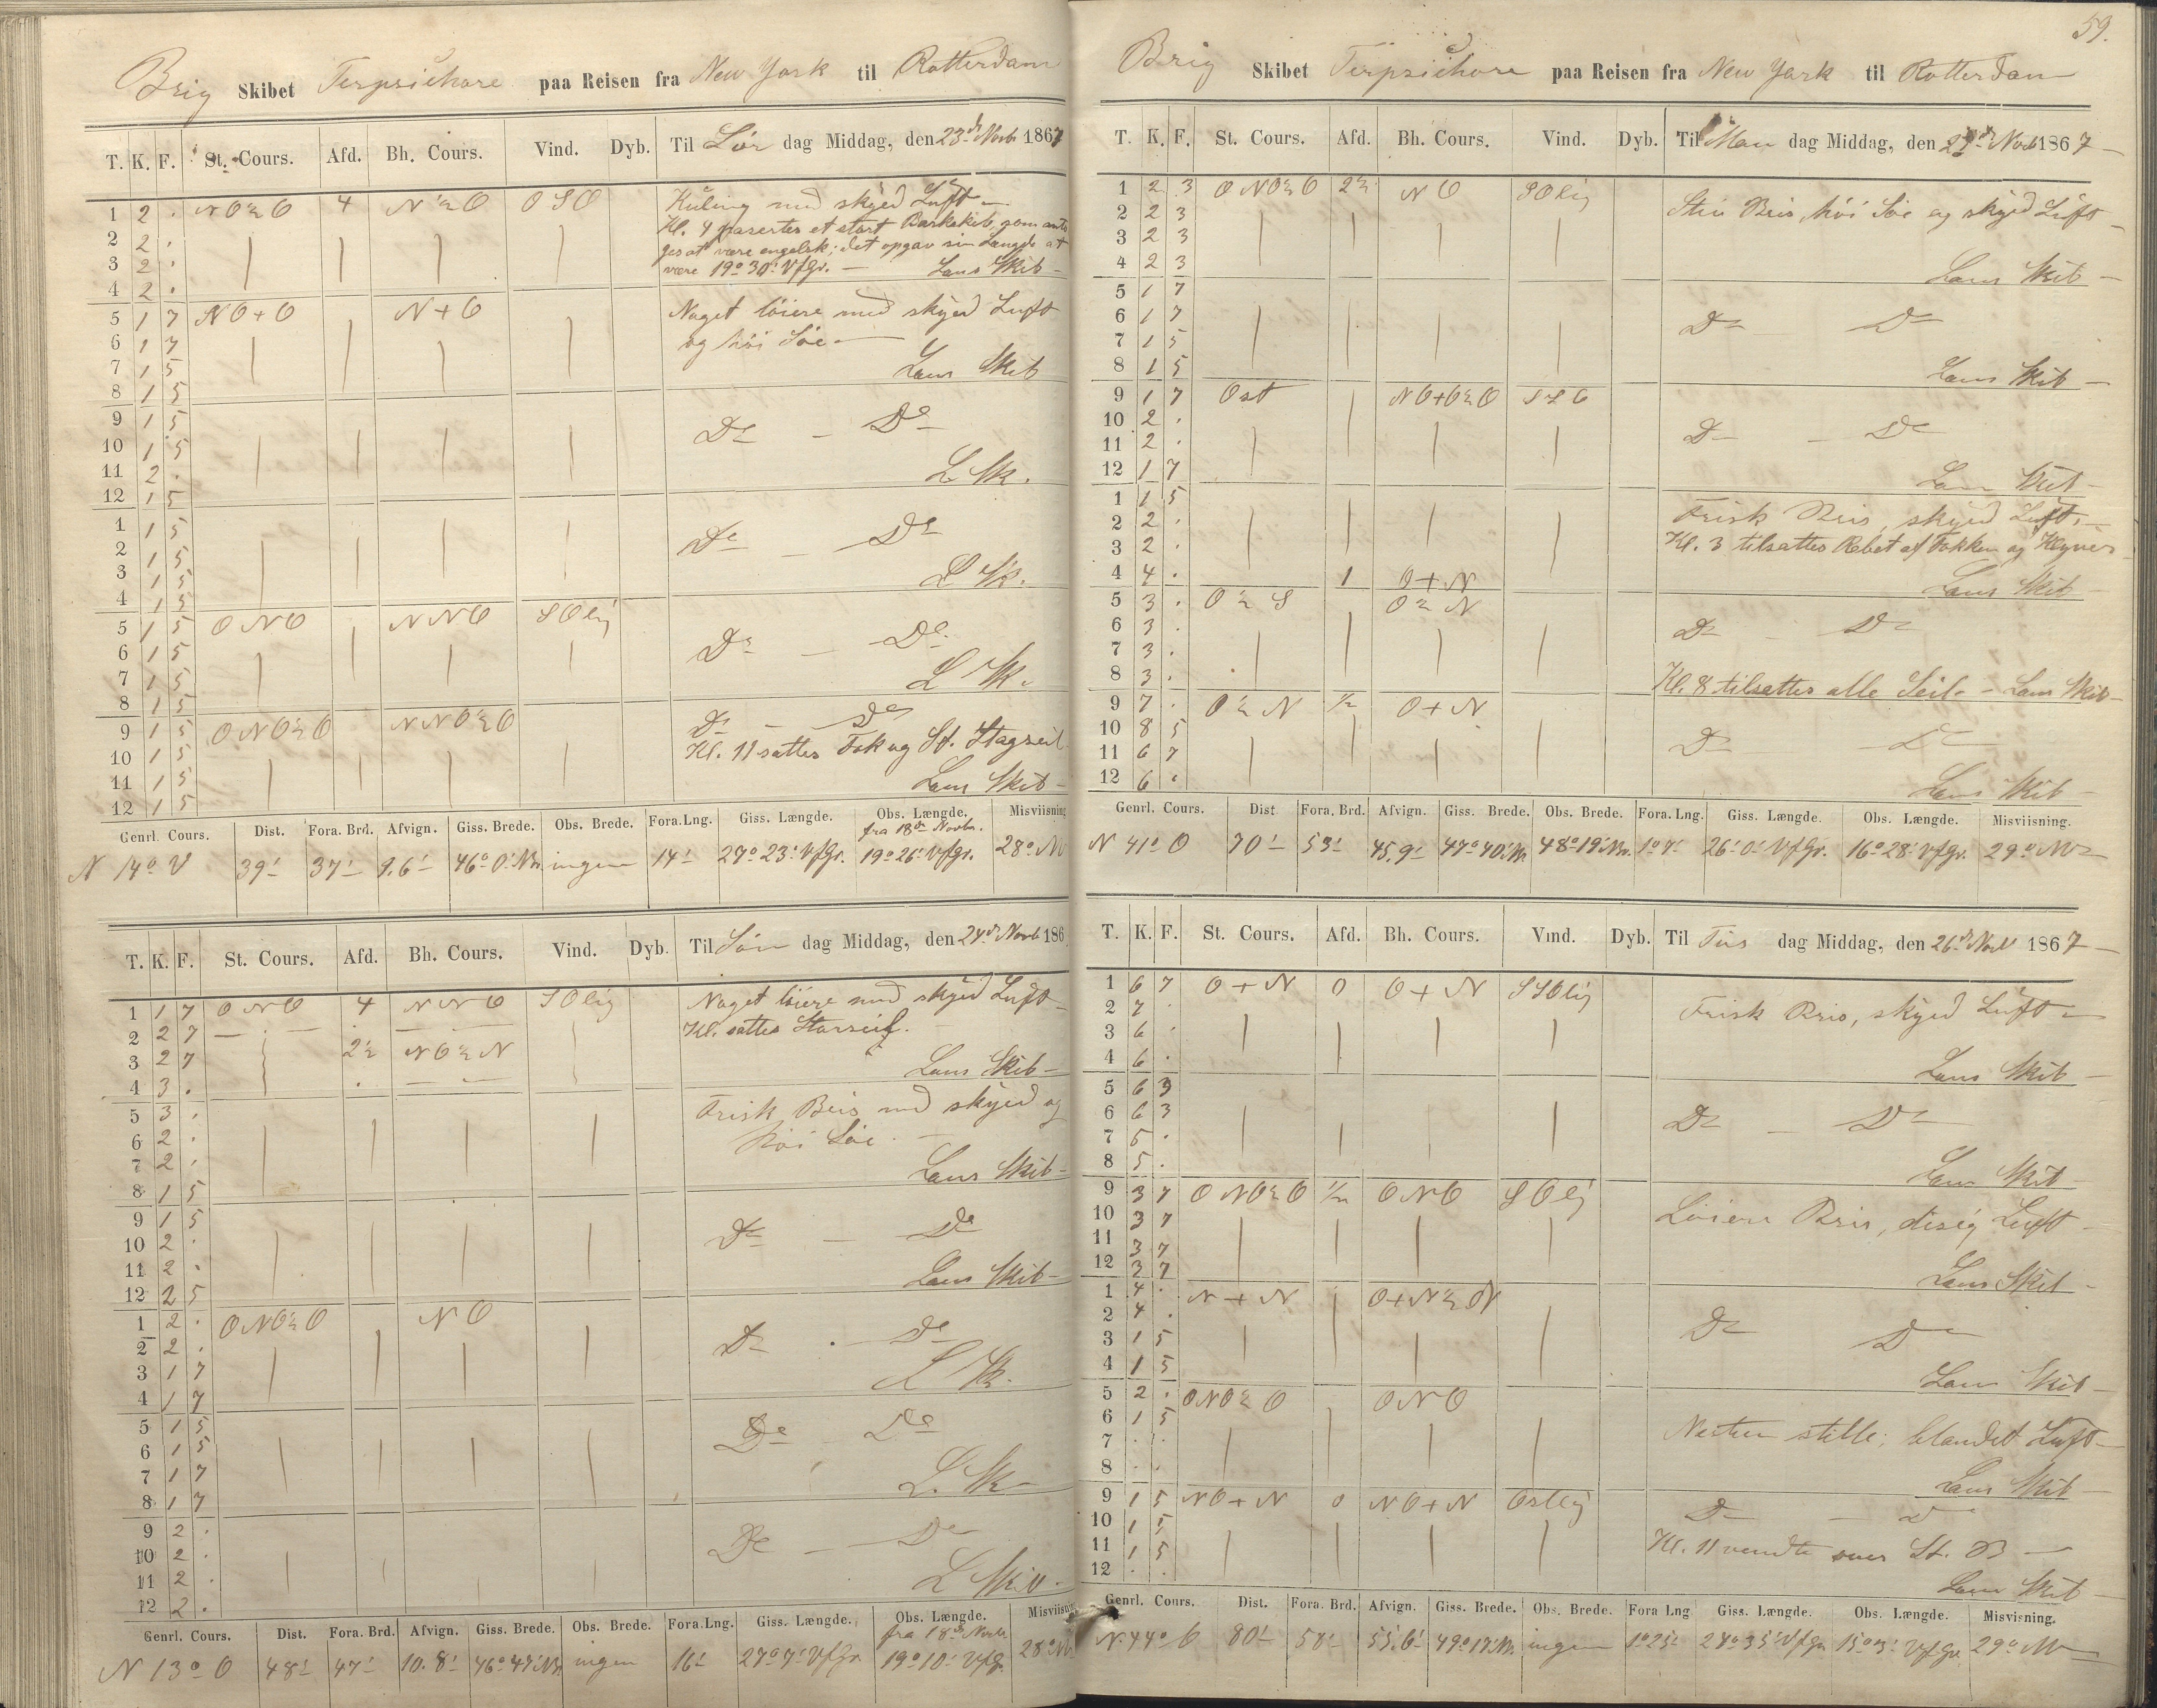 Brig Skibet Terpsichore paa Reisen fra New York til Rotterdam
T. K. F. St. Cours. Afd. Bh. Cours. Vind. Dyb. Til Lør dag Middag, den 23de Novb 1867
1 2 . NO½O 4 N½O OSO Kuling med skyed Luft
2 2 . Kl. 4 paserter et stort Barkskib, som anto
3 2 . ges at være engelsk; det opgav sin Længde at
4 2 . være 19° 30' VfGr. — Lens Skib
5 1 7 NO+O N+O Noget løiere med skyed Luft
6 1 7 og høi Søe
7 1 5 Lens Skib
8 1 5
9 1 5
10 1 5 Do — Do
11 2 .
12 1 5 L Sk.
1 1 5
2 1 5 Do — Do
3 1 5
4 1 5 L Sk.
5 1 5 ONO NNO SOlig
6 1 5 Do — Do
7 1 5
8 1 5 L Sk.
9 1 5 ONO½O NNO½O Do — Do
10 1 5 Kl. 11 sattes Fok og St. Stagseil
11 1 5
12 1 5 Lens Skib
Genrl. Cours. Dist. Fora. Brd. Afvign. Giss. Brede. Obs. Brede. Fora. Lng. Giss. Længde. Obs. Længde. Misviisning
fra 18de Novbr.
N 14° O 39' 37' 9.6' 46° 0' Nr. ingen 14' 27° 23' VfGr. 19° 26' VfGr. 28° NV
T. K. F. St. Cours. Afd. Bh. Cours. Vind. Dyb. Til Søn dag Middag, den 24de Novb 186
1 1 7 ONO 4 NNO SOlig Noget løiere med skyed Luft
2 2 7 Kl. sattes Storseil.
3 2 7 2½ NO½N
4 3 . Lens Skib
5 3 . Frisk Bris med skyed og
6 2 . høi Søe
7 2 .
8 1 5 Lens Skib
9 1 5
10 2 . Do — Do
11 2 .
12 2 5 Lens Skib
1 2 . ONO½O NO
2 2 . Do Do
3 1 7
4 1 7 L Sk.
5 1 5
6 1 5 Do Do
7 1 7
8 1 7 L. Sk
9 2 .
10 2 . Do — Do
11 2 .
12 2 . L Skib
Genrl. Cours. Dist. Fora. Brd. Afvign. Giss. Brede. Obs. Brede. Fora. Lng. Giss. Længde. Obs. Længde. Misviisning
fra 18de Novbr
N 13° O 48' 47' 10.8' 46° 47' Nr. ingen 16' 27° 7' VfGr 19° 10' VfGr. 28° NV
59.
Brig Skibet Terpsichore paa Reisen fra New York til Rotterdam
T. K. F. St. Cours. Afd. Bh. Cours. Vind. Dyb. Til Man dag Middag, den 25de Novb 1867
1 2 3 ONO½O 2½ NO SOlig
2 2 3 Stiv Bris, høi Søe og skyed Luft
3 2 3
4 2 3 Lens Skib
5 1 7
6 1 7 Do Do
7 1 5
8 1 5 Lens Skib
9 1 7 Ost NO+O½O SSO
10 2 .
11 2 . Do — Do
12 1 7 Lens Skib
1 1 5 Frisk Bris, skyed Luft.
2 2 . Kl. 3 tilsattes Rebet af Fokken og Klyver
3 2 .
4 4 . 1 O+N Lens Skib
5 3 . O½S O½N
6 3 . Do Do
7 3 .
8 3 . Kl. 8 tilsattes alle Seil. — Lens Skib
9 7 . O½N ½ O+N
10 8 5 Do Do
11 6 7
12 6 . Lens Skib
Genrl. Cours. Dist. Fora. Brd. Afvign. Giss. Brede. Obs. Brede. Fora. Lng. Giss. Længde. Obs. Længde. Misviisning.
N 41° O 70' 53' 45.9' 47° 40' Nr. 48° 19' Nr. 1° 7' 26° 0' VfGr. 16° 28' VfGr. 29° NV
T. K. F. St. Cours. Afd. Bh. Cours. Vind. Dyb. Til Tirs dag Middag, den 26de Novb 1867
1 6 7 O+N 0 O+N SSOlig
2 7 . Frisk Bris, skyed Luft
3 6 .
4 6 . Lens Skib
5 6 3
6 6 3 Do — Do
7 5 .
8 5 . Lens Skib
9 3 7 ONO½O ½ ONO SOlig
10 3 7 Løiere Bris, disig Luft
11 3 7
12 3 7 Lens Skib
1 4 . N+N O+N½N
2 4 . Do Do
3 1 5
4 1 5 Lens Skib
5 2 . ONO½O ONO
6 1 5 Nesten stille; blandet Luft
7 . .
8 . . Lens Skib
9 1 5 NO+N 0 NO+N Ostlig Do — Do
10 1 5
11 1 5 Kl. 11 vendte over St. B
12 . . Lens Skib
Genrl. Cours. Dist. Fora. Brd. Afvign. Giss. Brede. Obs. Brede. Fora Lng Giss. Længde. Obs. Længde. Misvisning.
N. 44° O 80' 58' 55.6' 49° 17' Nr. ingen 1° 25' 24° 35' VfGr 15° 3' VfGr 29° NV